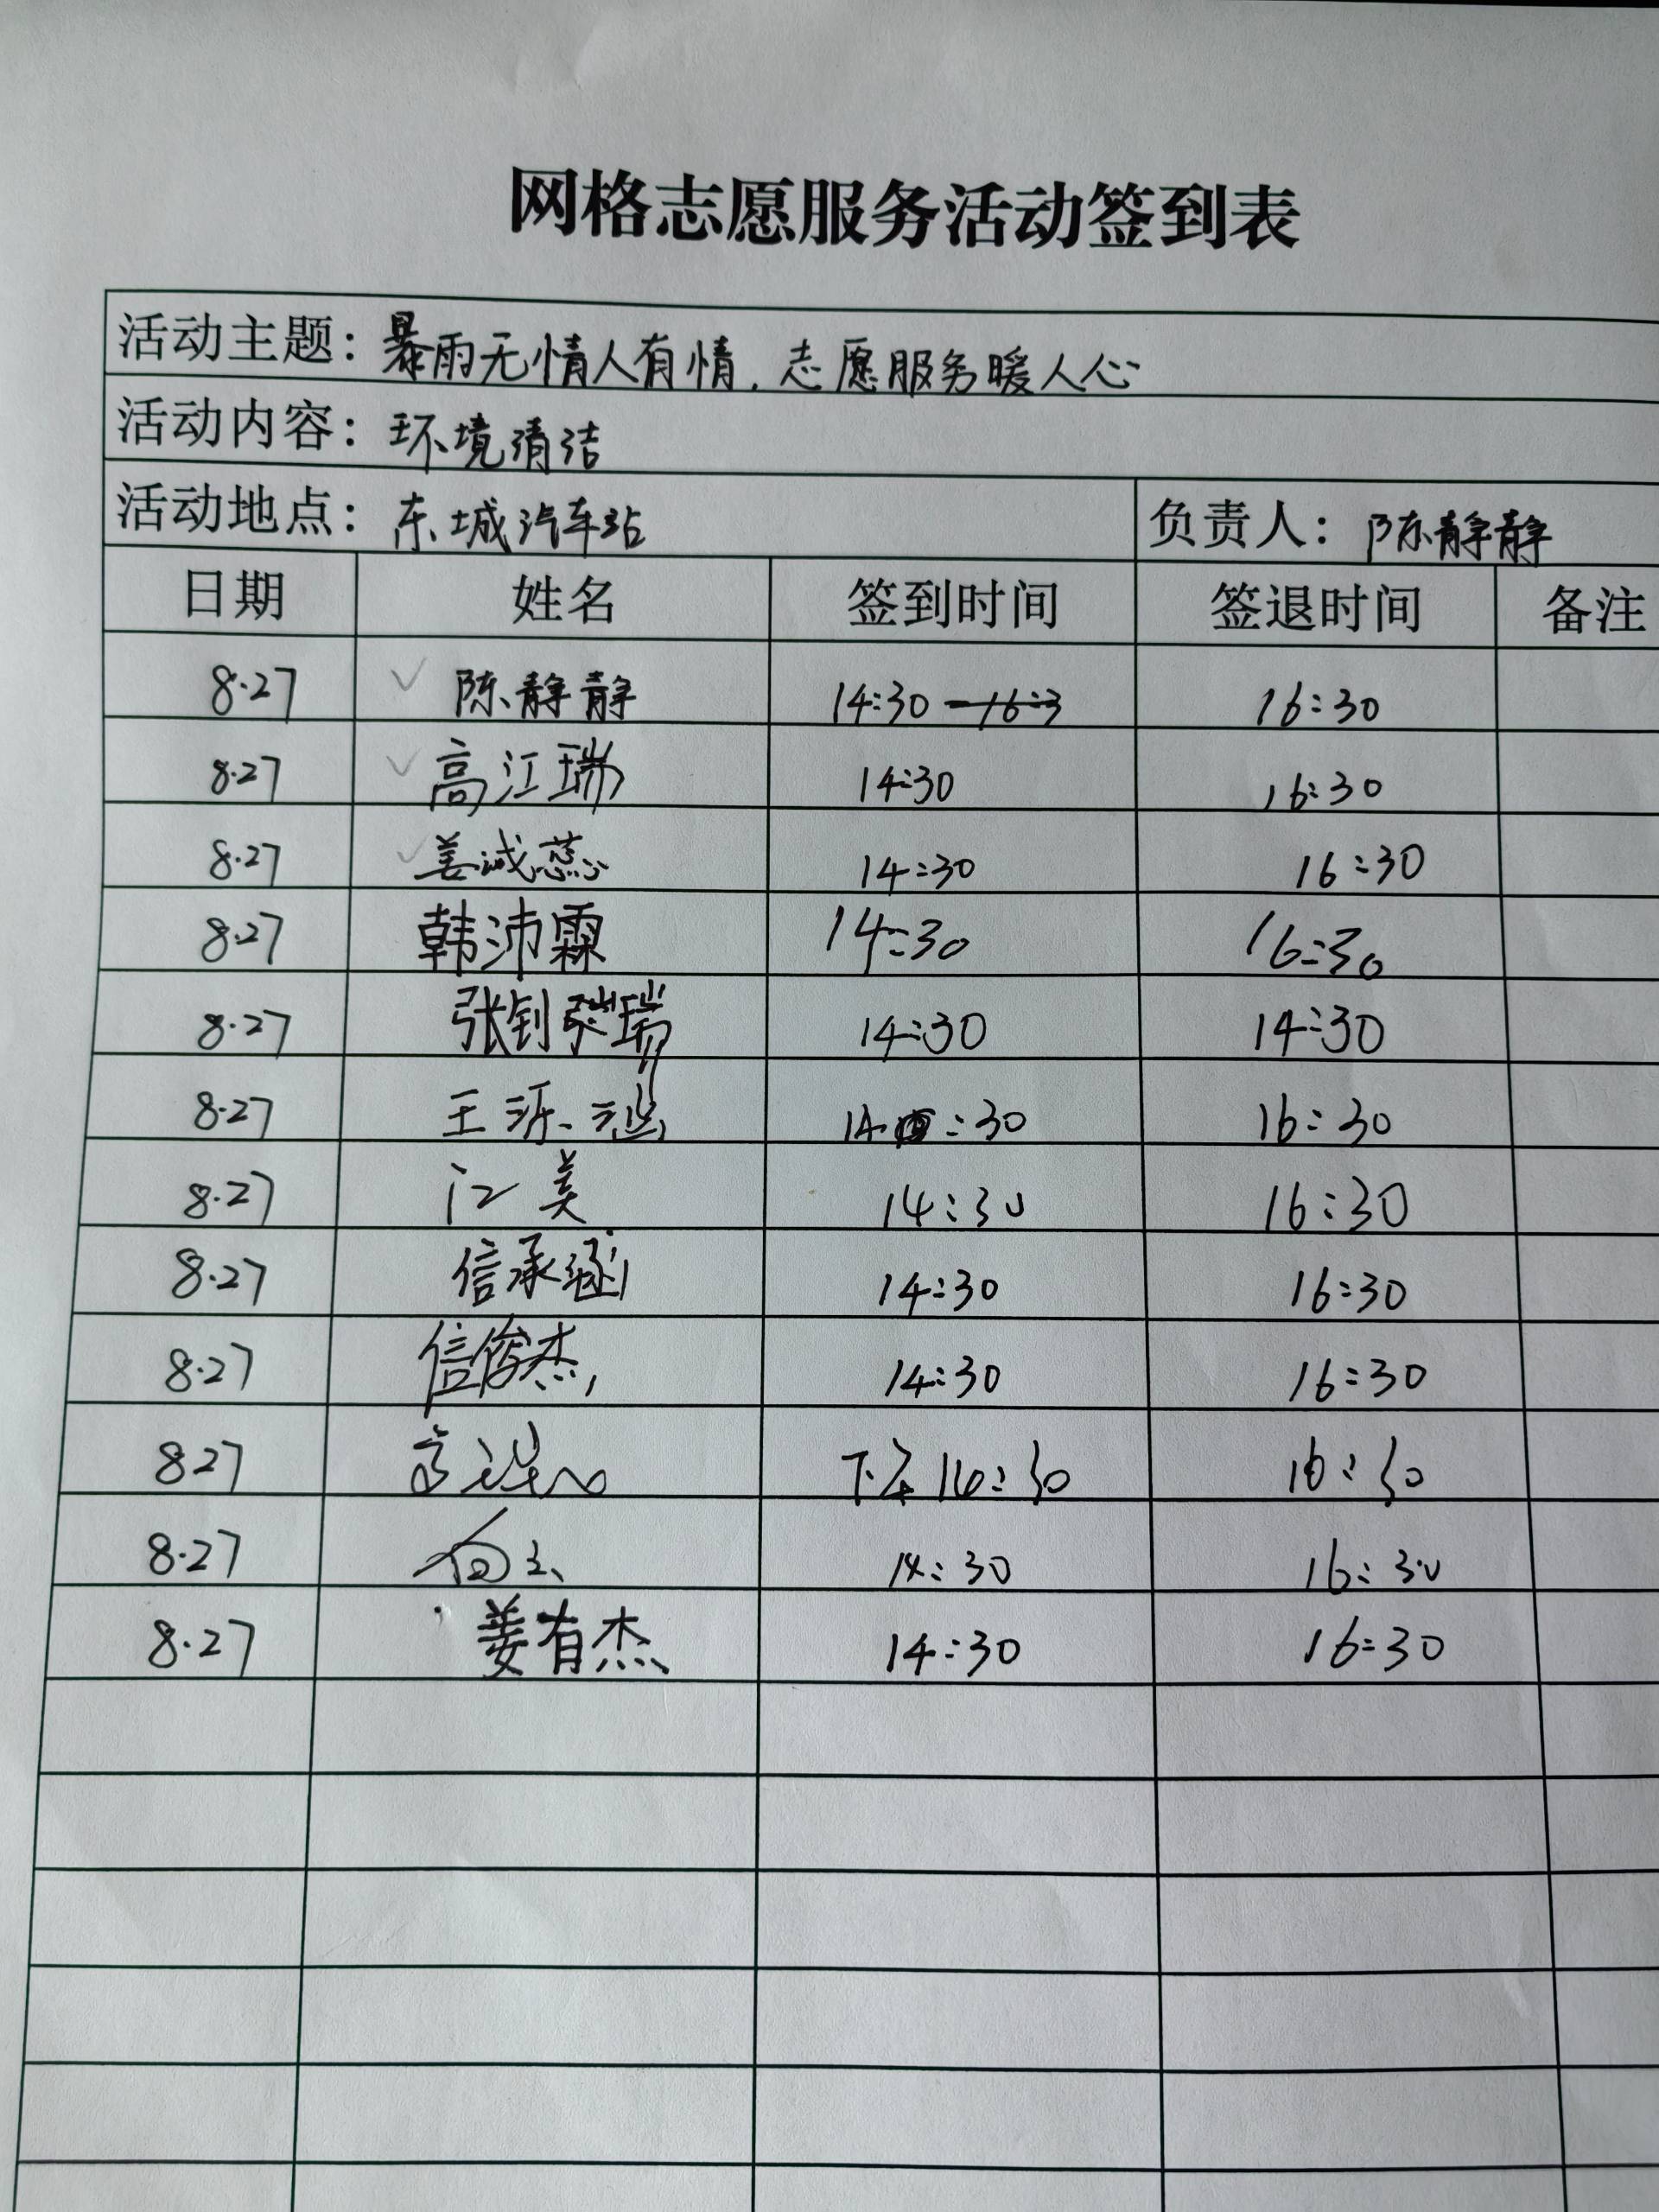 网格志愿服务活动签到表
活动主题：暴雨无情人有情，志愿服务暖人心
活动内容：环境清洁
活动地点：东城汽车站 负责人：陈静静
日期 姓名 签到时间 签退时间 备注
8.27 ✓ 陈静静 14:30 16:30
8.27 ✓ 高江瑞 14:30 16:30
8.27 ✓ 姜诚蕊 14:30 16:30
8.27 韩沛霖 14:30 16:30
8.27 张钊瑞 14:30 14:30
8.27 王泺涵 14:30 16:30
8.27 江美 14:30 16:30
8.27 信承涵 14:30 16:30
8.27 信俊杰 14:30 16:30
8.27 16:30
8.27 14:30 16:30
8.27 姜有杰 14:30 16:30